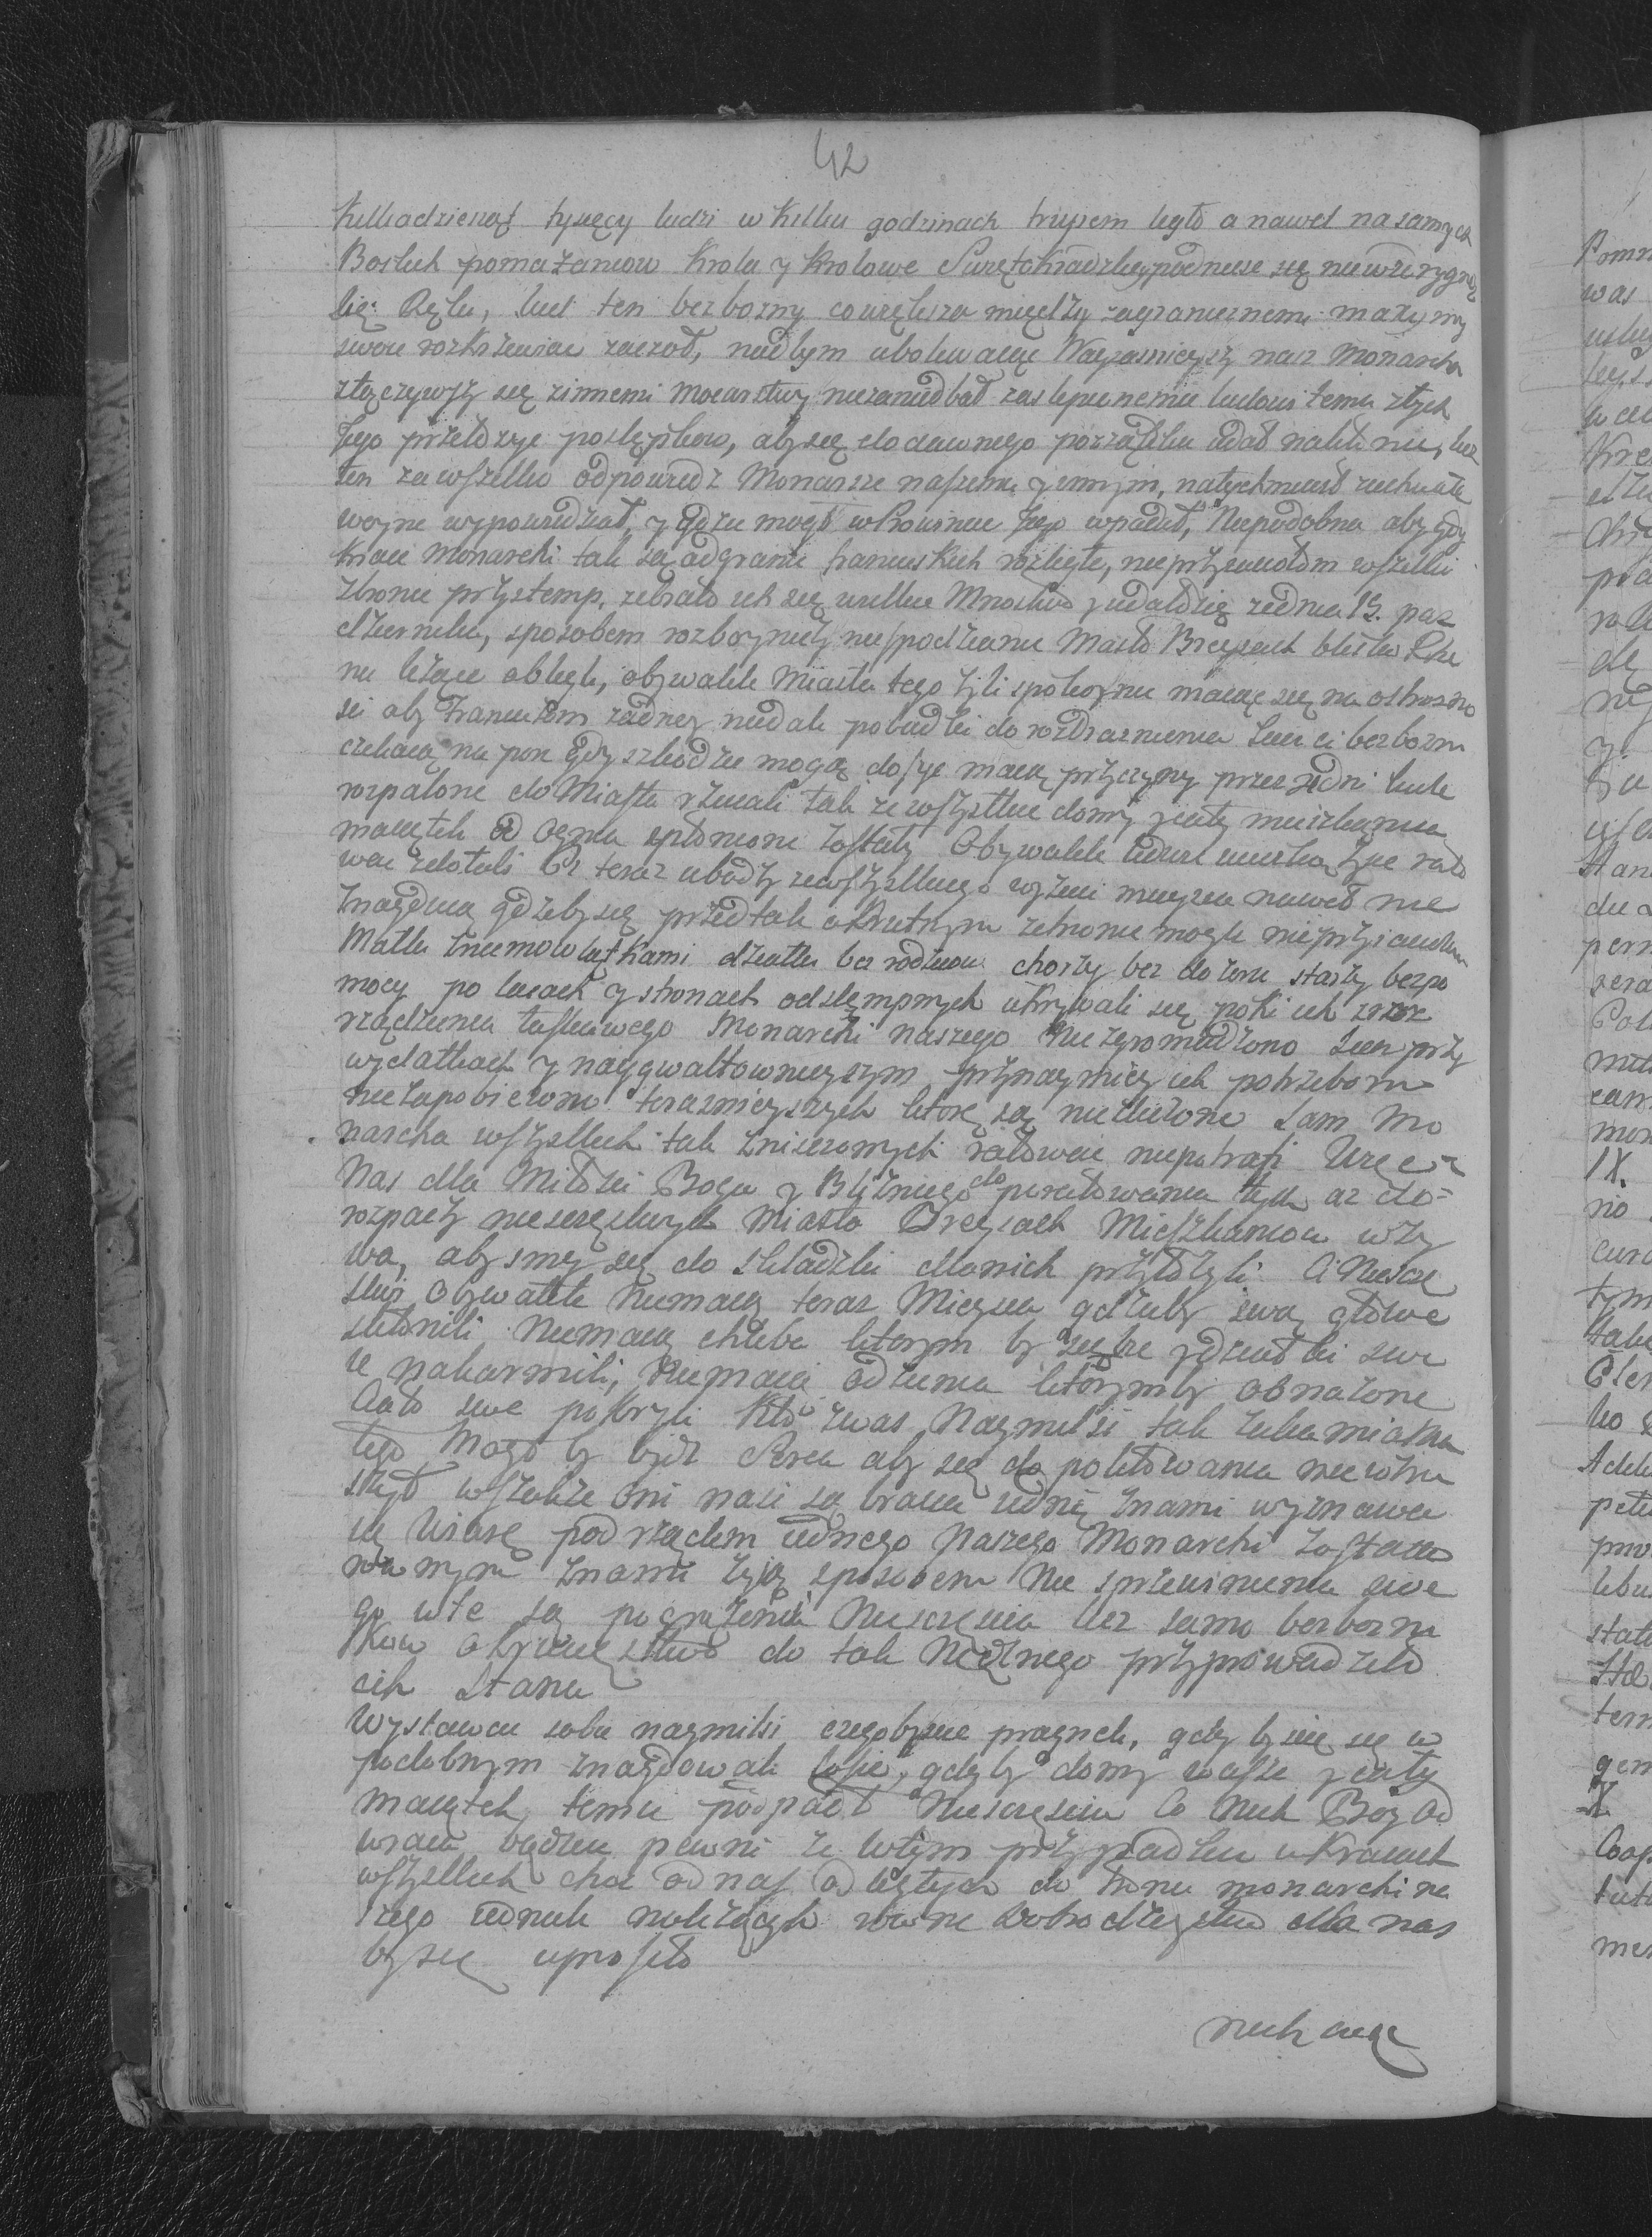 42
Kilkadziesąt tysięcy ludzi w kilku godzinach trupem legło a nawet na samych
Boskich pomazancow Krola y Krolowe Swiętokradzkiey podniesc się niewzrygnę
li Ręku, lud ten bezbozny co większa między zagranicznemi maxymy
swoie rozkrzewiac zaczoł, nad tym ubolewaiąc Nayiasnieyszy nasz Monarcha
złączywszy się zinnemi Mocarstwy niezaniedbał zaslepionemu ludowi temu złych
Jego przełozyc postępkow, aby się do dawnego porządku udał nakłonic, lecz
ten za wszelko odpowiedz Monarsze naszemu y innym, natychmiast zuchwałe
woyne wypowiedział, y gdzie mogł w Prowincie Jego wpadał, Niepodobna aby gdy
Kraie Monarchi tak są od granic francuskich rozległe, nieprzyiaciołom wszelki
zbronic przystemp, zebrało ich się wielkie Mnostwo y udało się zednia 15. paz
dziernika, sposobem rozboyniczy niespodzianie Miasto Breysach blisko Rhe
nu leżące oblegli, obywatele Miasta tego żyli spokoynie maiąc się na ostrozno
sci aby Francuzom żadney niedali pobudki do rozdraznienia lecz ci bezbozni
czekaią na pore gdy szkodzic mogą dosyc maią przyczyny przez 3 dni kule
rozpalone do Miasta rzucali tak ze wszystkie domy y cały mieszkancow
maiątek od ognia spłonione zostały Obywatele ledwie ucieczką życie rato
wac zdołali Ci teraz ubodzy ze wszystkiego wyzuci mieysca nawet nie
znaydują gdzieby się przed tak okrutnym schronic mogli nieprzyiacielem
Matki zniemowlątkami dziatki bez rodzicow chorzy bez dozoru starzy bez po
mocy po lasach y stronach odstempnych ukrywali się poki ich zroz
rządzenia łaskawego Monarchi naszego nie zgromadzono Lecz przy
wydatkach y naygwałtownieyszym przynaymniey ich potrzebom
niezapobiezono teraznieyszych ktore są niezliczone Sam Mo
narcha wszystkich tak zniszczonych ratowac niepotrafi Wzywa
Nas dla Miłosci Boga y Blizniego do poratowania tych az do
rozpaczy nieszczęsliwych Miasta Breysach Mieszkancow wzy
wa, abysmy się do składki dlanich przyłozyli Ci Nieszczę
sliwi Obywatele Niemaią teraz Mieysca gdzieby swą głowe
skłonili Niemaią chleba ktorym by siebie y dziatki swo
ie nakarmili, Niemaią odzienia ktorymby obnazone
Ciało swe pokryli Kto zwas Naymilsi tak zakamiałe
tego Mogł by bydz Serca aby się do politowania niewzru
szył wszakze Oni nasi są bracia iednę znami wyznawa
ią Wiarę pod rządem iednego Naszego Monarchi zostaią
rownym znami żyią sposobem Nie z przewinienia swe
go w te są pograzeni Nieszczęscia lecz samo bezbozni
kow okrucienstwo do tak Nędznego przyprowadziło
ich Stanu
Wystawcie sobie naymilsi czegobyscie pragneli, gdy byscie się w
podobnym znaydowali losie, gdyby domy wasze y cały
maiątek temu podpadł Nieszczęsciu Co Niech Bog od
wraca bądzcie pewni ze w tym przypadku w Kraiach
wszystkich choc od nas odległych do Tronu monarchi na
szego iednak nalezących rowne Dobrodzieystwo dla nas
by się uprosiło
niech więc